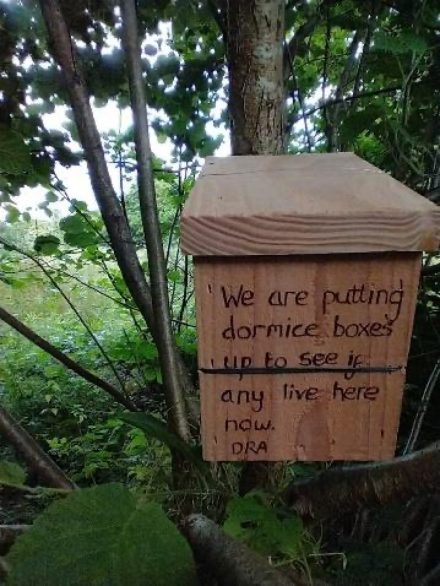 We are putting
dormice boxes
up to see if
any live here
now.
DRA